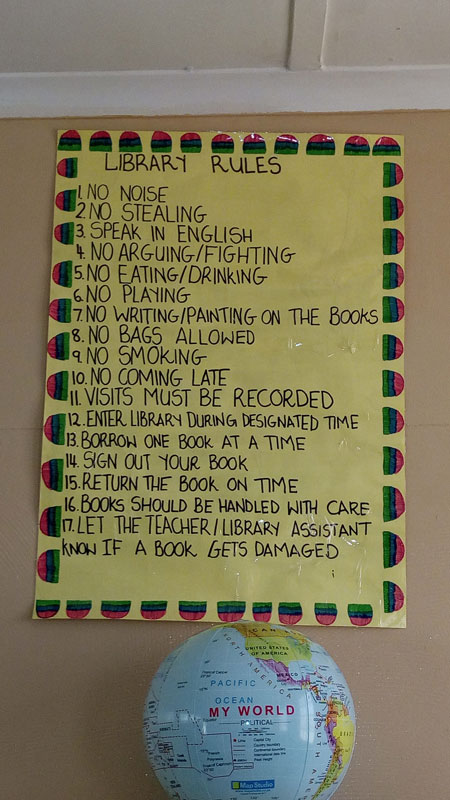 LIBRARY RULES
1. NO NOISE
2. NO STEALING
3. SPEAK IN ENGLISH
4. NO ARGUING/FIGHTING
5. NO EATING/DRINKING
6. NO PLAYING
7. NO WRITING/PAINTING ON THE BOOKS
8. NO BAGS ALLOWED
9. NO SMOKING
10. NO COMING LATE
11. VISITS MUST BE RECORDED
12. ENTER LIBRARY DURING DESIGNATED TIME
13. BORROW ONE BOOK AT A TIME
14. SIGN OUT YOUR BOOK
15. RETURN THE BOOK ON TIME
16. BOOKS SHOULD BE HANDLED WITH CARE
17. LET THE TEACHER/LIBRARY ASSISTANT
KNOW IF A BOOK GETS DAMAGED
UNITED STATES
OF AMERICA
NORTH AMERICA
MEXICO
PACIFIC
OCEAN
MY WORLD
POLITICAL
Map Studio